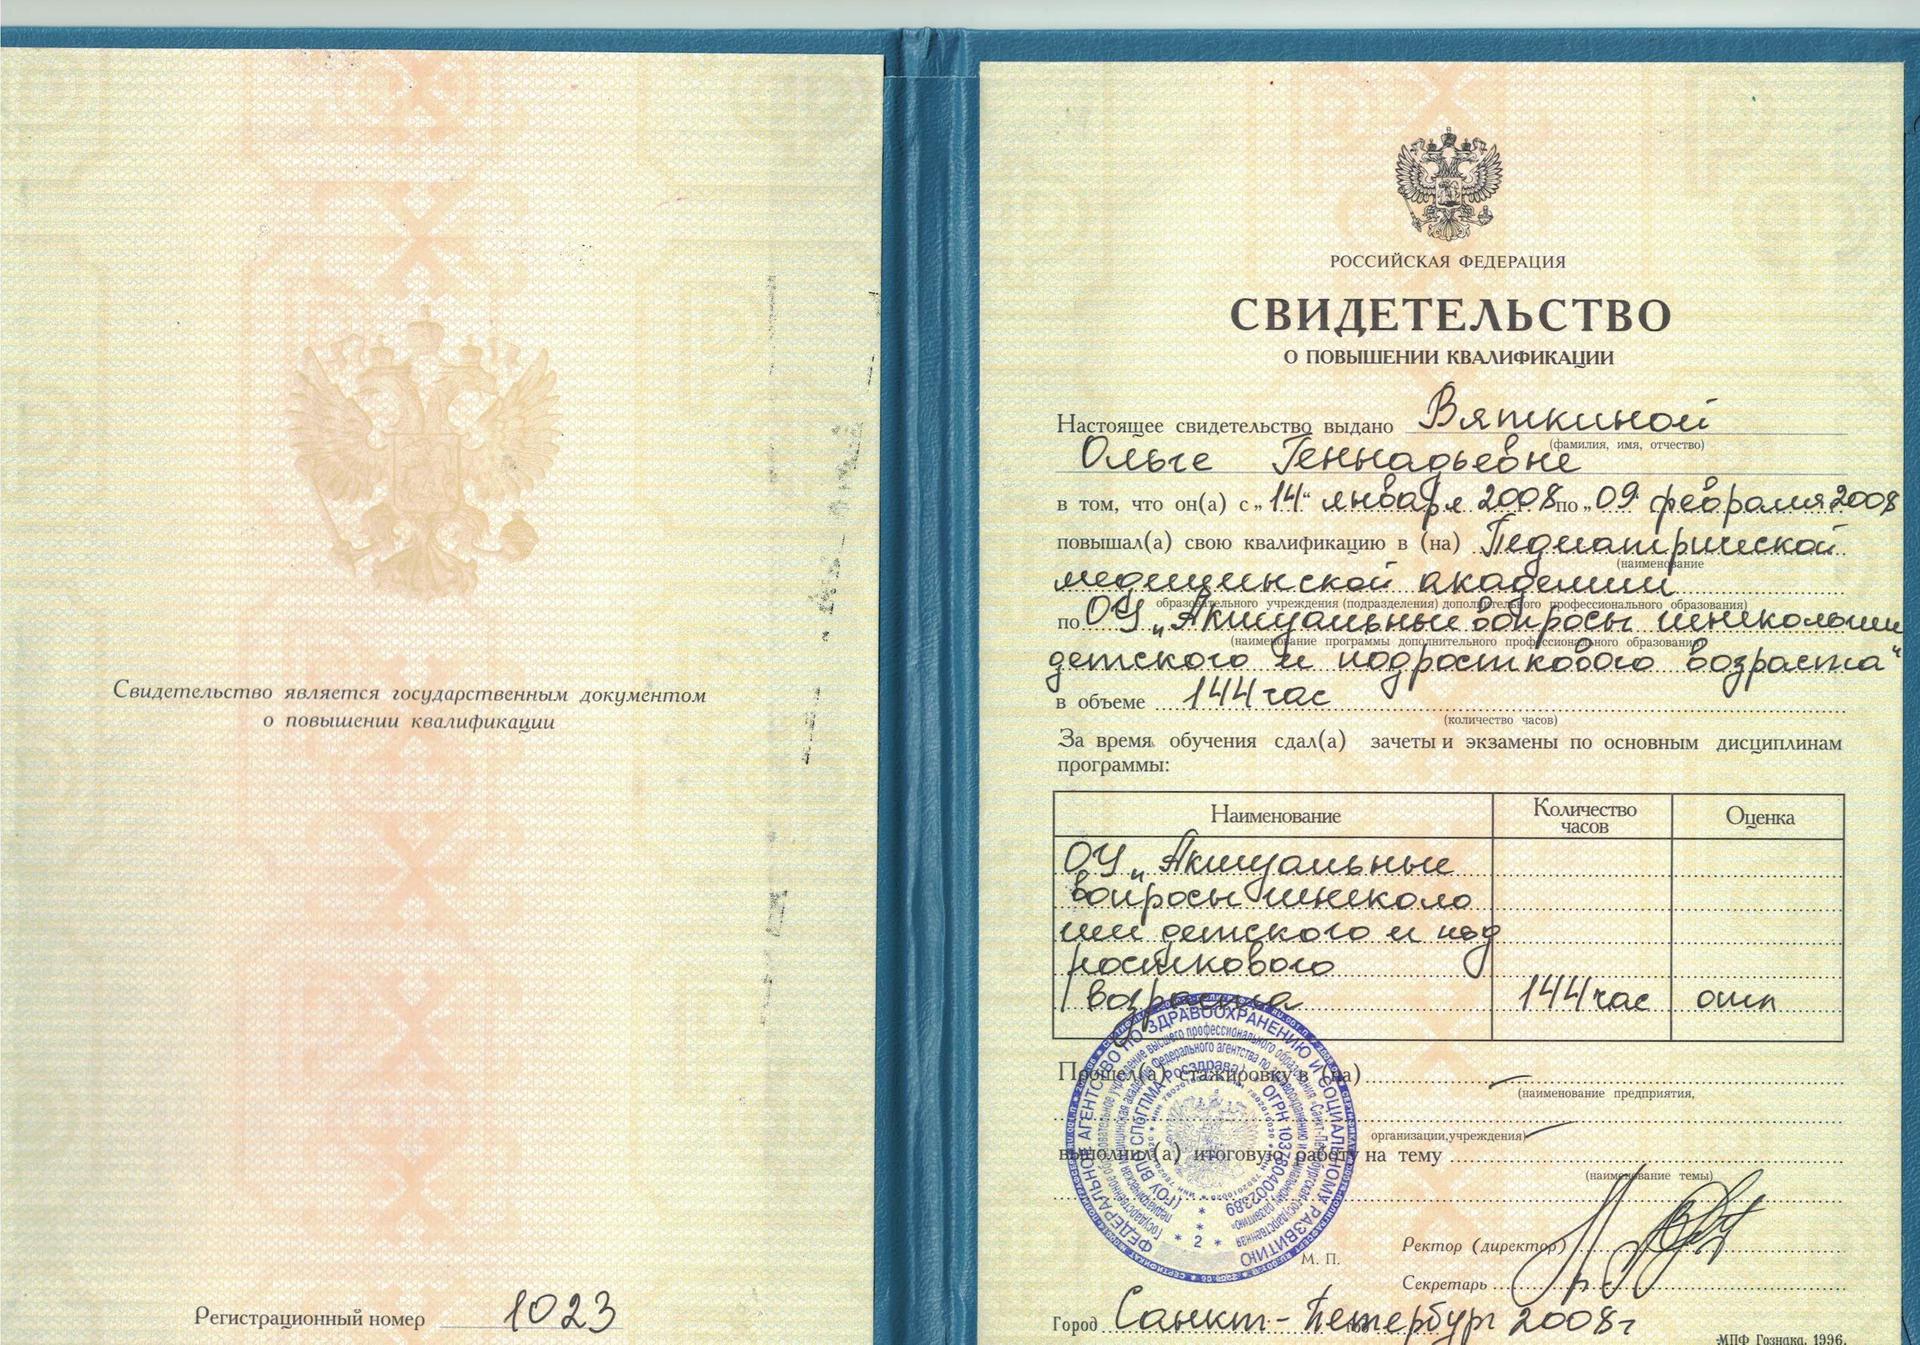 Свидетельство является государственным документом
о повышении квалификации
Регистрационный номер 1023
РОССИЙСКАЯ ФЕДЕРАЦИЯ
СВИДЕТЕЛЬСТВО
О ПОВЫШЕНИИ КВАЛИФИКАЦИИ
Настоящее свидетельство выдано Вяткиной
(фамилия, имя, отчество)
Ольге Геннадьевне
в том, что он(а) с „14“ января 2008 по „09“ февраля 2008
повышал(а) свою квалификацию в (на) Педиатрической
(наименование
медицинской академии
образовательного учреждения (подразделения) дополнительного профессионального образования)
по ОУ „Актуальные вопросы гинекологии
(наименование программы дополнительного профессионального образования)
детского и подросткового возраста“
в объеме 144 час
(количество часов)
За время обучения сдал(а) зачеты и экзамены по основным дисциплинам
программы:
Наименование Количество часов Оценка
ОУ „Актуальные
вопросы гинеколо
гии детского и под
росткового
возраста 144 час отл
Прошел(а) стажировку в (на)
(наименование предприятия,
организации, учреждения)
выполнил(а) итоговую работу на тему
(наименование темы)
ФЕДЕРАЛЬНОЕ АГЕНТСТВО ПО ЗДРАВООХРАНЕНИЮ И СОЦИАЛЬНОМУ РАЗВИТИЮ
(ГОУ ВПО СПбГПМА Росздрава) * ОГРН 1037804002389
* 2 *
М. П.
Ректор (директор)
Секретарь
Город Санкт-Петербург 2008г
МПФ Гознака. 1996.